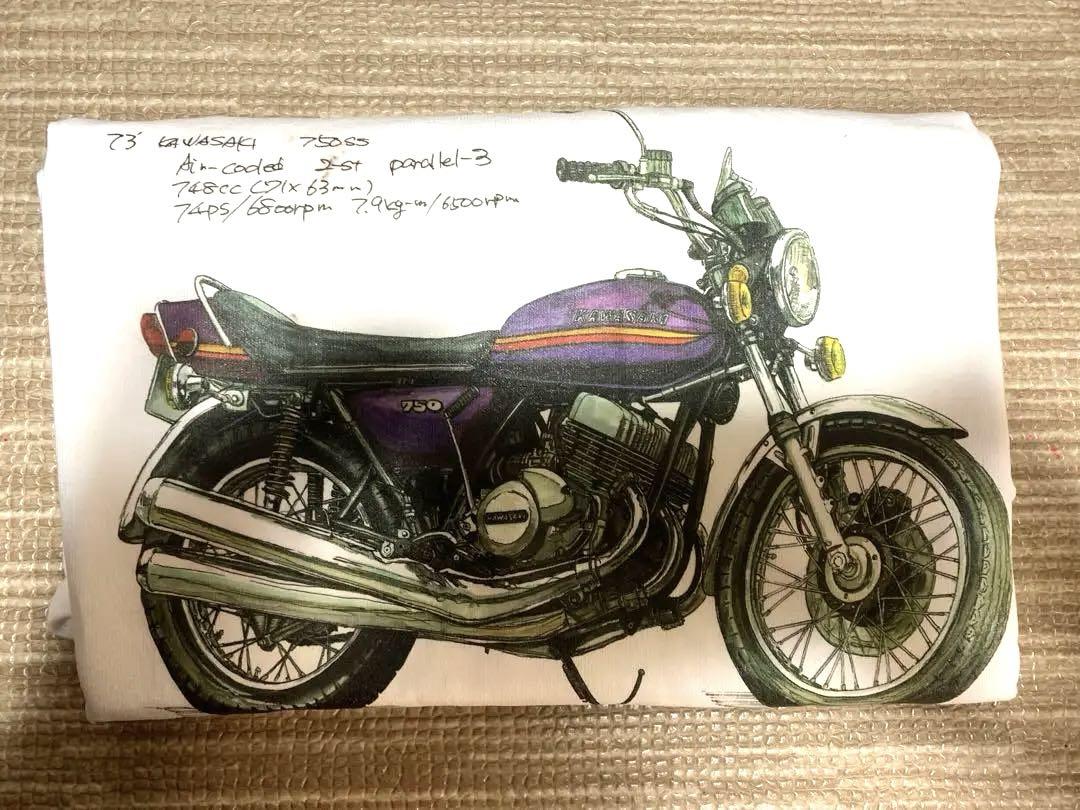 73' KAWASAKI 750SS
Air-cooled 2-st parallel-3
748cc (71x63mm)
74ps/6800rpm 7.9kg-m/6500rpm
KAWASAKI
750
KAWASAKI